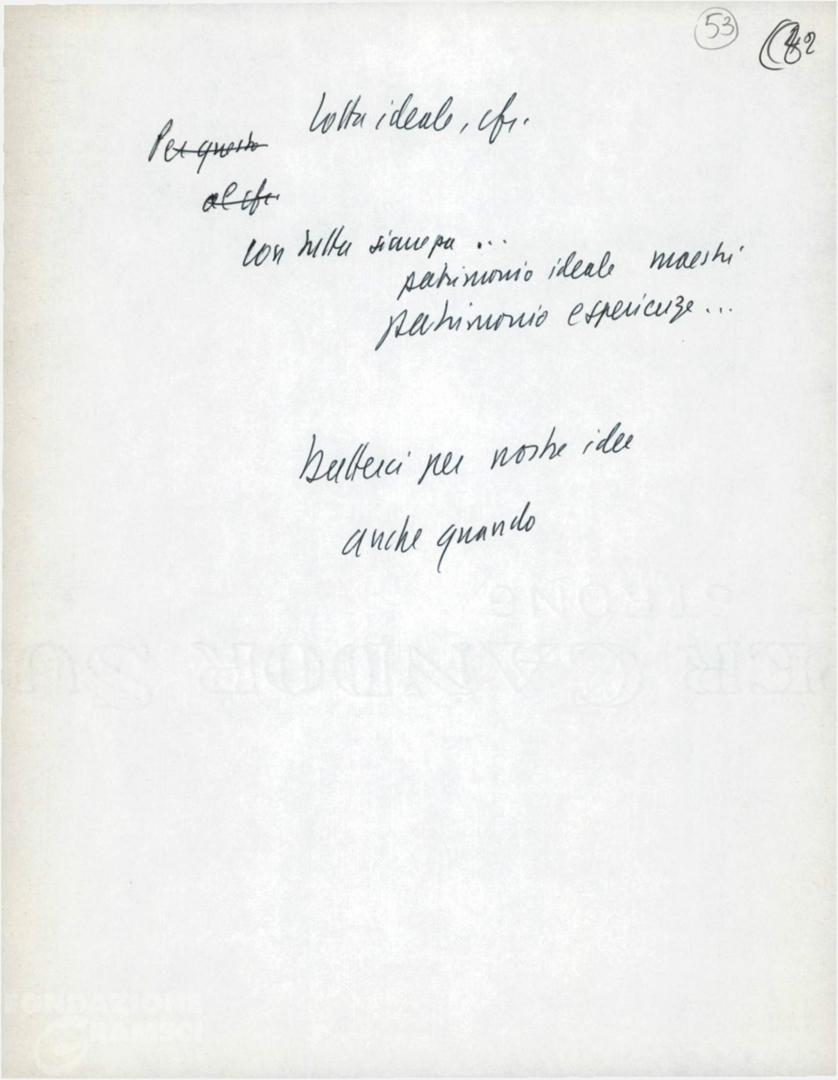 53
Lotta ideale, cfr.
Per questo
al cfr.
con tutta stampa ...
patrimonio ideale maestri
patrimonio esperienze ...
batterci per nostre idee
anche quando
FONDAZIONE
GRAMSCI